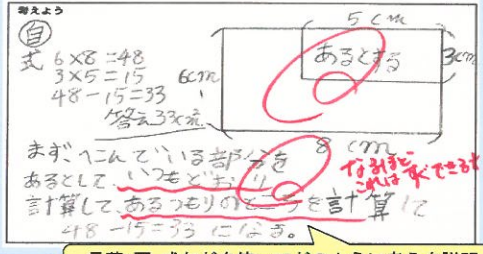 考えよう
自
式 6×8=48
3×5=15
48-15=33
答え33cm²
5cm
あるとする
3cm
6cm
8cm
まず、へこんでいる部分を
あるとして、いつもどおり
計算して、あるつもりのところを計算して
48-15=33になる。
なるほど
これは